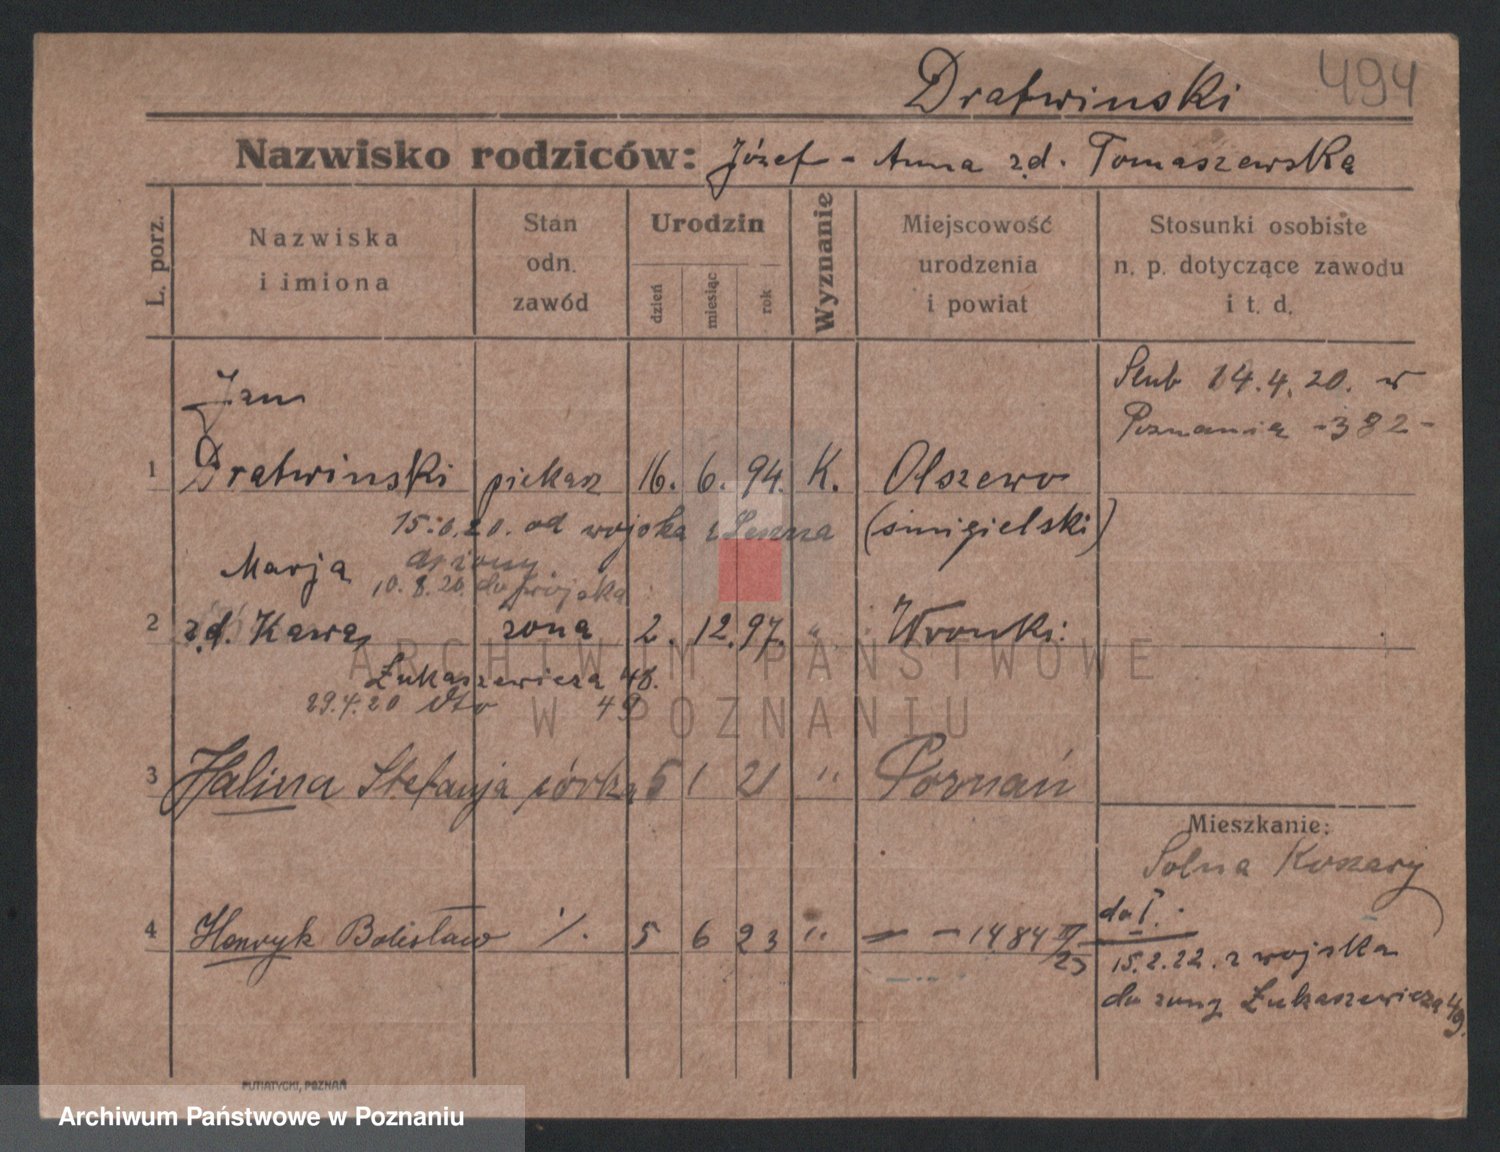 Dratwinski 494
Nazwisko rodziców: Józef - Anna zd. Tomaszewska
L. porz.
Nazwiska i imiona
Stan odn. zawód
Urodzin
dzień
miesiąc
rok
Wyznanie
Miejscowość urodzenia i powiat
Stosunki osobiste n. p. dotyczące zawodu i t. d.
Jan
Ślub 14.4.20. w
Poznaniu -382-
1 Dratwinski piekarz 16. 6. 94. K. Olszewo
od wojska z Leszna (śmigielski)
Marja do żony
10.8.20. do wojska
2 zd. Kawa żona 2. 12. 97. " Wronki
Łukaszewicza 48.
29.4.20 dto 49
3 Halina Stefanja córka 5 1 21 " Poznań
Mieszkanie:
Solna Koszary
do I.
4 Henryk Bolesław /. 5 6 23 " 1484 III/23
15.2.22. z wojska
do żony Łukaszewicza 49.
PUTIATYCKI, POZNAŃ
ARCHIWUM PAŃSTWOWE
W POZNANIU
Archiwum Państwowe w Poznaniu